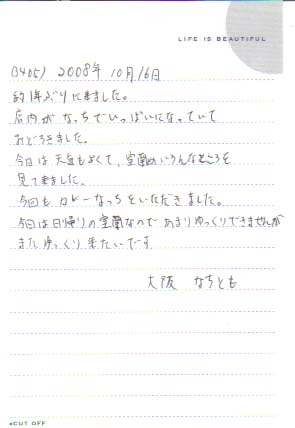 LIFE IS BEAUTIFUL
(3405) 2008年 10月16日
約1年ぶりに来ました。
店内が なっちでいっぱいになっていて
おどろきました。
今日は 天気もよくて、室蘭のいろんなところを
見て来ました。
今回も カレーなっちをいただきました。
今回は日帰りの室蘭なので あまりゆっくりできませんが
また ゆっくり 来たいです
大阪 なちとも
●CUT OFF